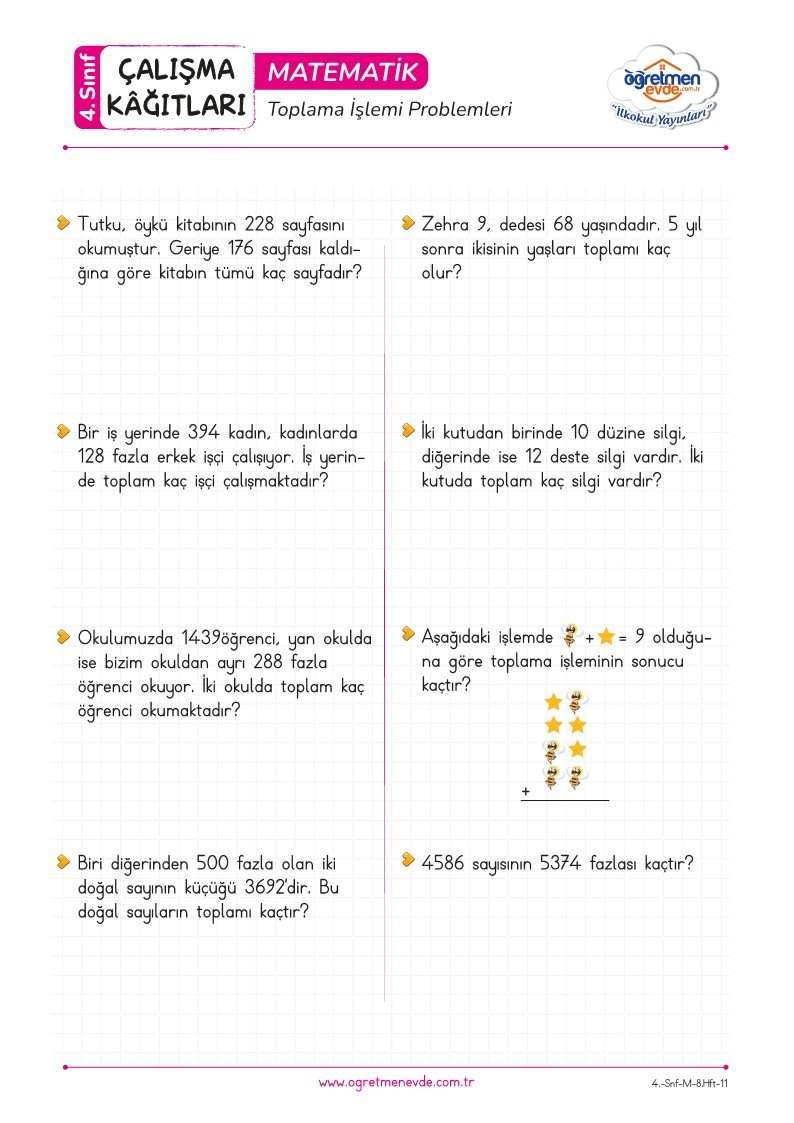 4. Sınıf
ÇALIŞMA
KÂĞITLARI
MATEMATİK
Toplama İşlemi Problemleri
öğretmen
evde.com.tr
"İlkokul Yayınları"
Tutku, öykü kitabının 228 sayfasını
okumuştur. Geriye 176 sayfası kaldı-
ğına göre kitabın tümü kaç sayfadır?
Bir iş yerinde 394 kadın, kadınlarda
128 fazla erkek işçi çalışıyor. İş yerin-
de toplam kaç işçi çalışmaktadır?
Okulumuzda 1439öğrenci, yan okulda
ise bizim okuldan ayrı 288 fazla
öğrenci okuyor. İki okulda toplam kaç
öğrenci okumaktadır?
Biri diğerinden 500 fazla olan iki
doğal sayının küçüğü 3692'dir. Bu
doğal sayıların toplamı kaçtır?
Zehra 9, dedesi 68 yaşındadır. 5 yıl
sonra ikisinin yaşları toplamı kaç
olur?
İki kutudan birinde 10 düzine silgi,
diğerinde ise 12 deste silgi vardır. İki
kutuda toplam kaç silgi vardır?
Aşağıdaki işlemde + = 9 olduğu-
na göre toplama işleminin sonucu
kaçtır?
+
4586 sayısının 5374 fazlası kaçtır?
www.ogretmenevde.com.tr
4.-Snf-M-8.Hft-11